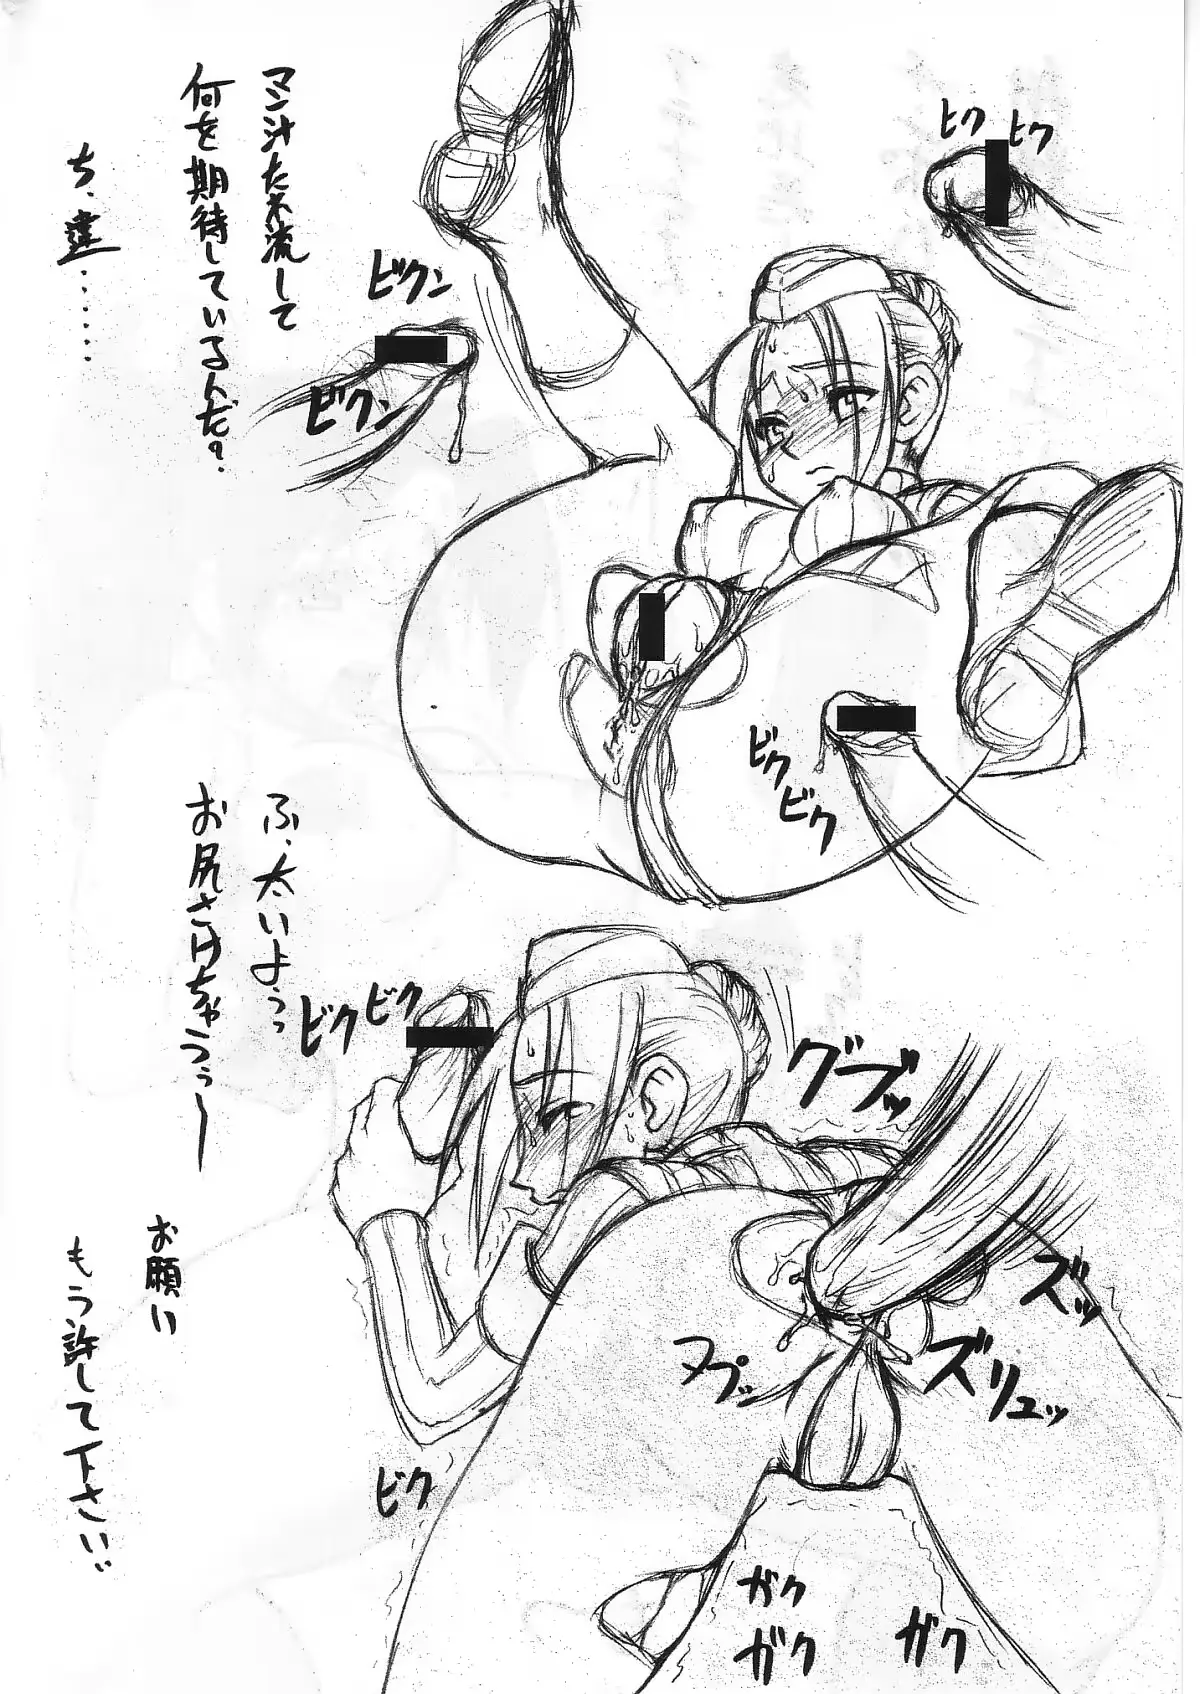 ヒク
ヒク
マン汁たれ流して
何を期待しているんだ?
ち、違……
ビクン
ビクン
ビク
ビク
ふ、太いよぅっ
お尻さけちゃうぅー
ビク
ビク
グブッ
ズッ
ズリュッ
ヌプッ
お願い
もう許して下さい
ビク
ガク
ガク
ガク